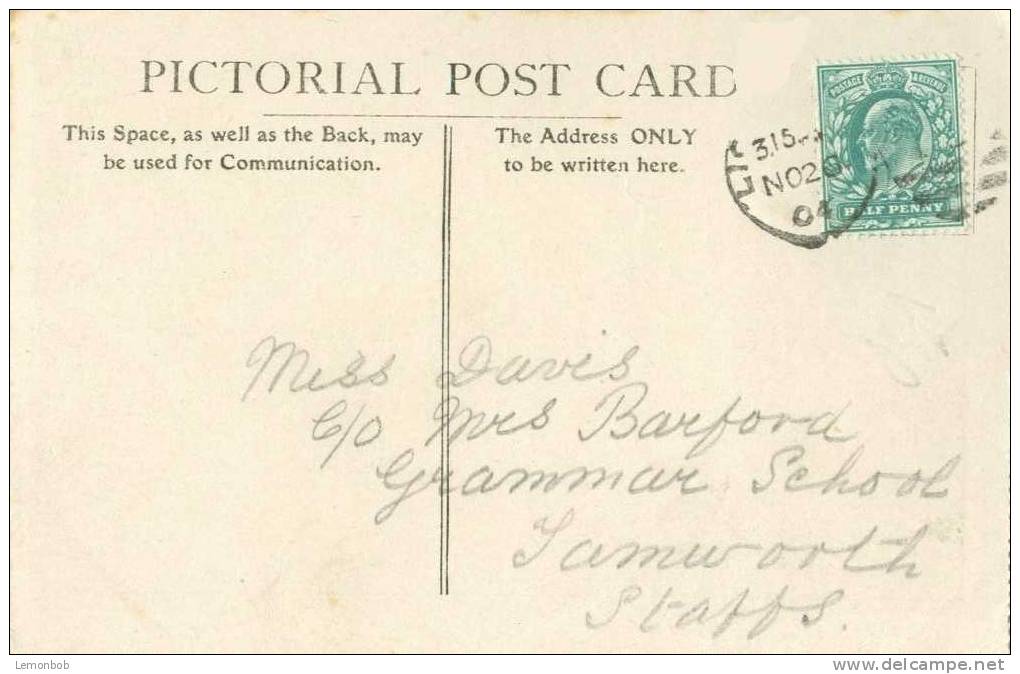 PICTORIAL POST CARD
This Space, as well as the Back, may
be used for Communication.
The Address ONLY
to be written here.
POSTAGE & REVENUE
HALF PENNY
3.15
NO 2
04
Miss Davis
C/o Mrs Barford
Grammar School
Tamworth
Staffs.
Lemonbob
www.delcampe.net